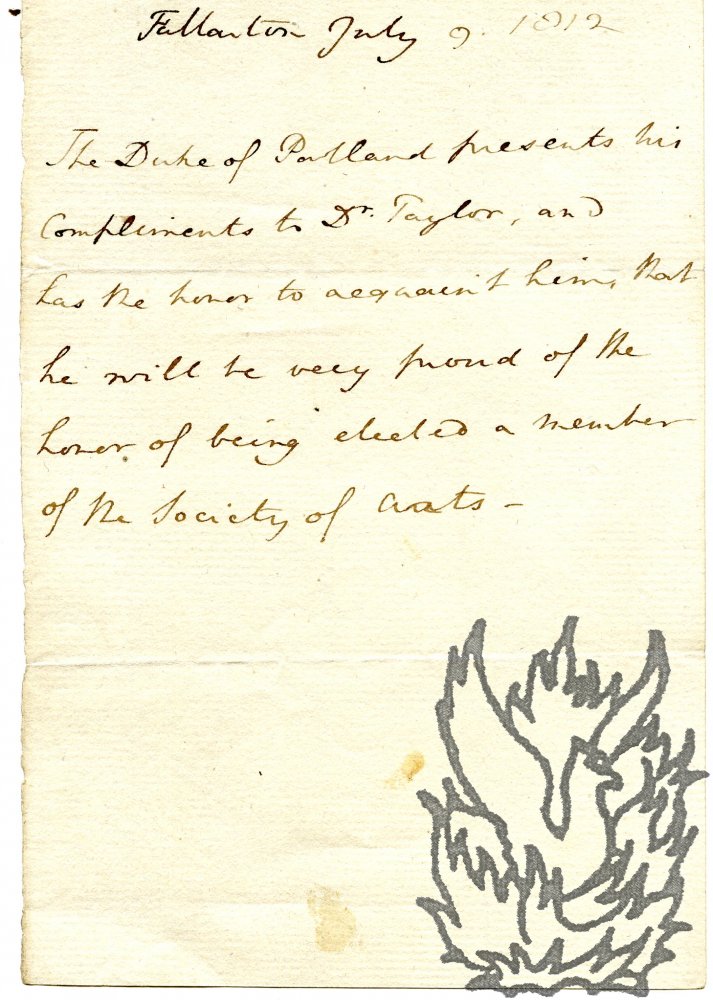 Fullarton July 9. 1812
The Duke of Portland presents his
Compliments to Dr. Taylor, and
has the honor to acquaint him, that
he will be very proud of the
honor of being elected a member
of the Society of Arts –